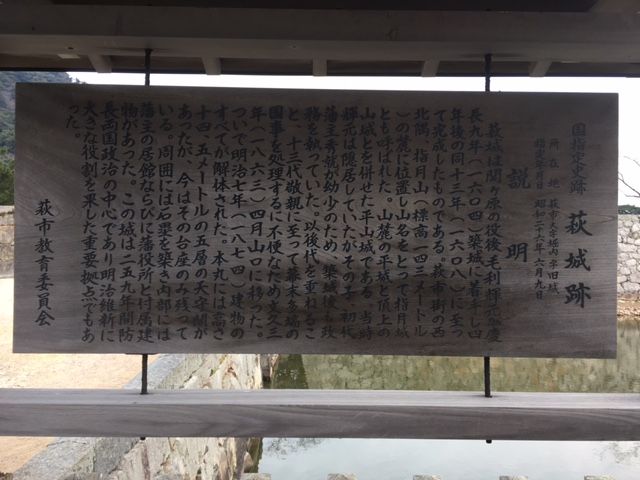 国指定史跡 萩城跡
所在地 萩市大字堀内字旧城
指定年月日 昭和二十六年六月九日
説明
萩城は関ヶ原の役後毛利輝元が慶
長九年（一六〇四）築城に着手し四
年後の同十三年（一六〇八）に至っ
て完成したものである。萩市街の西
北隅、指月山（標高一四三メートル
）の麓に位置し山名をとって指月城
とも呼ばれた。山麓の平城と頂上の
山城とを併せた平山城である。当時
輝元は隠居していたがその子、初代
藩主秀就が幼少のため、築城後も政
務を執っていた。以後代を重ねるこ
と、十三代敬親に至って幕末多端の
国事を処理するに不便なため文久三
年（一八六三）四月山口に移った。
ついで明治七年（一八七四）建物の
すべてが解体された。本丸には高さ
十四・五メートルの五層の天守閣が
あったが、今はその台座のみ残って
いる。周囲には石塁を築き内部には
藩主の居館ならびに藩役所と付属建
物があった。この城は二五九年間防
長両国政治の中心であり明治維新に
大きな役割を果した重要拠点でもあ
った。
萩市教育委員会